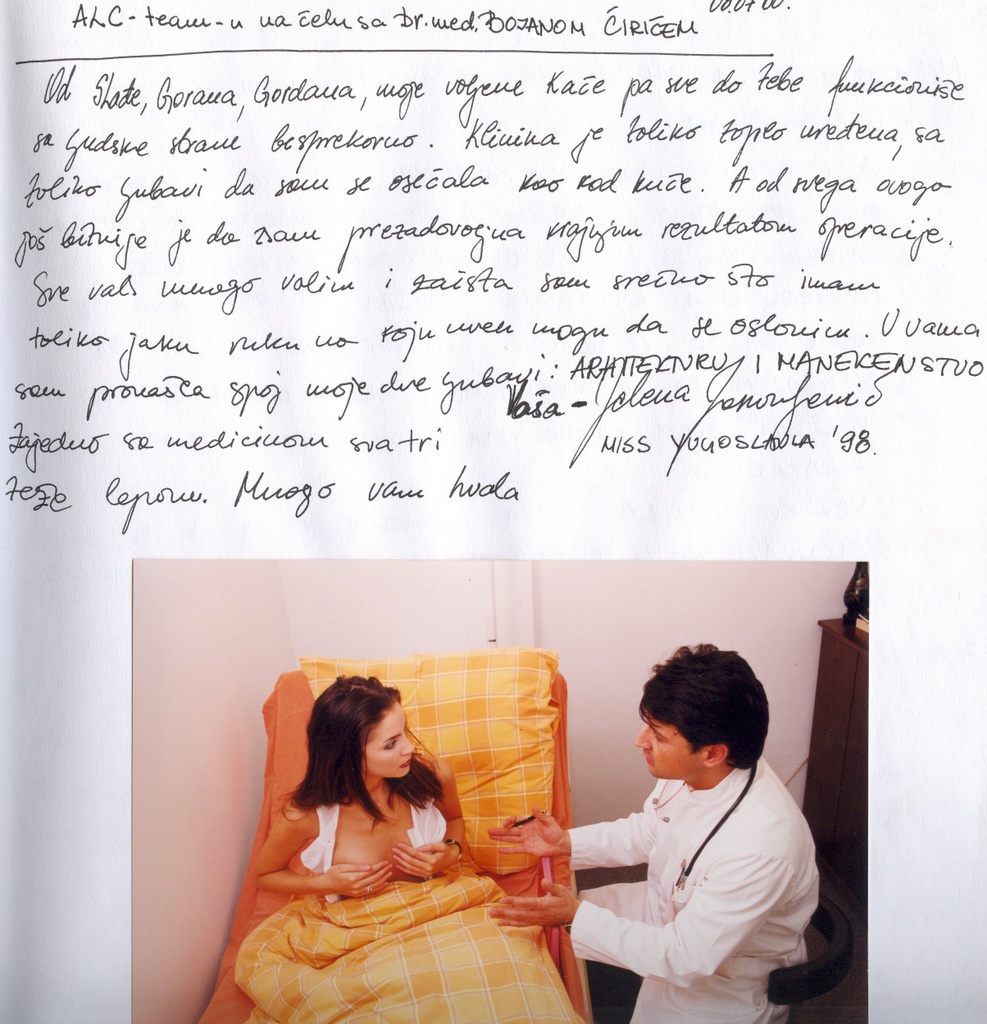 ALC-team-u na čelu sa Dr.med. BOJANOM ĆIRIĆEM
Od Slađe, Gorana, Gordana, moje voljene Kaće pa sve do Tebe funkcioniše
sa ljudske strane besprekorno. Klinika je toliko toplo uređena, sa
toliko ljubavi da sam se osećala kao kod kuće. A od svega ovoga
još bitnije je da sam prezadovoljna krajnjim rezultatom operacije.
Sve vas mnogo volim i zaista sam srećna što imam
toliko jaku ruku na koju uvek mogu da se oslonim. U vama
sam pronašla spoj moje dve ljubavi: ARHITEKTURU I MANEKENSTVO
Vaša -
zajedno sa medicinom sva tri MISS YUGOSLAVIA '98.
teže lepom. Mnogo vam hvala